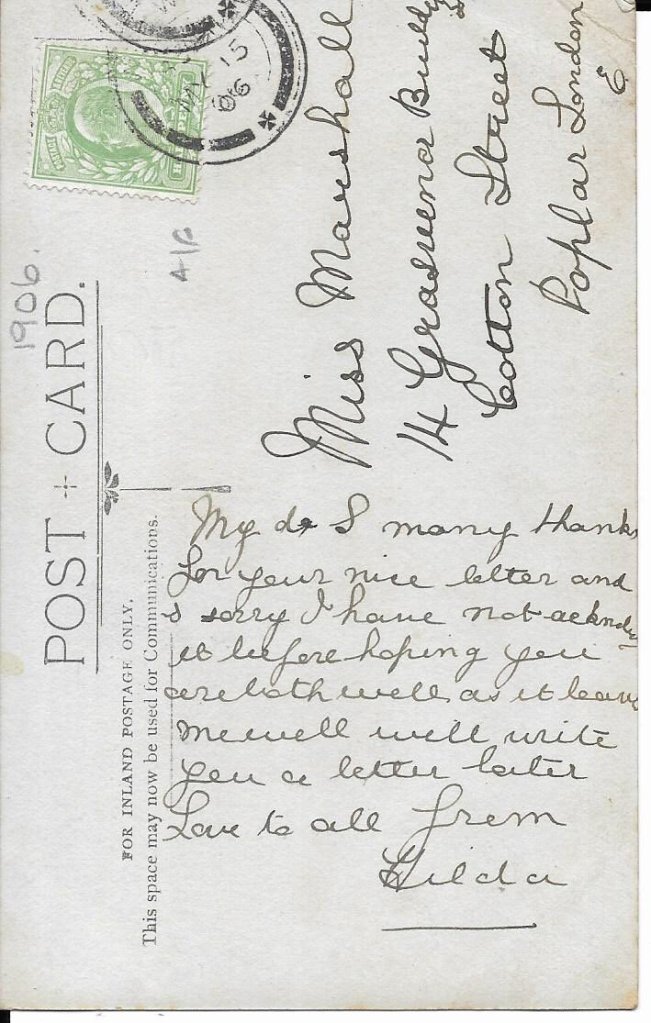 POST CARD.
FOR INLAND POSTAGE ONLY.
This space may now be used for Communications.
1906.
15
06
Miss Marshall
14 Grasmere Buildgs
Cotton Street
Poplar London
E
many thanks
for your nice letter and
sorry I have not
it before hoping you
are both well as it leaves
me well will write
you a letter later
Love to all from
Hilda